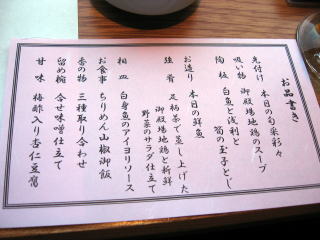 お品書き
先付け 本日の旬采彩々
吸い物 御殿場地鶏のスープ
陶板 白魚と浅利と
筍の玉子とじ
お造り 本日の鮮魚
強肴 足柄茶で蒸し上げた
御殿場地鶏と新鮮
野菜のサラダ仕立て
相皿 白身魚のアイヨリソース
お食事 ちりめん山椒御飯
香の物 三種取り合わせ
留め椀 合せ味噌仕立て
甘味 梅酢入り杏仁豆腐